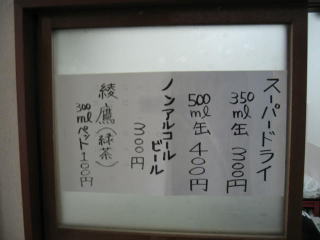 スーパードライ
350ml缶 300円
500ml缶 400円
ノンアルコール
ビール
300円
綾鷹(緑茶)
300mlペット100円